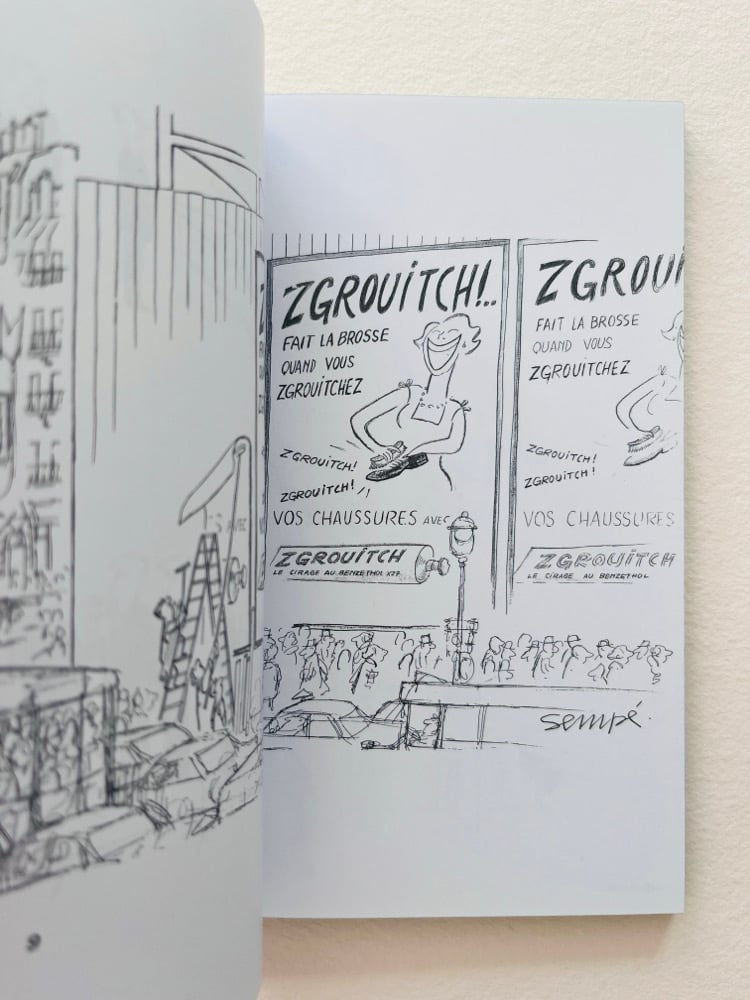 ZGROUITCH!..
FAIT LA BROSSE
QUAND VOUS
ZGROUITCHEZ
ZGROUITCH!
ZGROUITCH!
VOS CHAUSSURES AVEC
ZGROUITCH
LE CIRAGE AU BENZETHOL X27
ZGROUI
FAIT LA BROSSE
QUAND VOUS
ZGROUITCHEZ
ZGROUITCH!
ZGROUITCH!
VOS CHAUSSURES
ZGROUITCH
LE CIRAGE AU BENZETHOL
sempé.
9